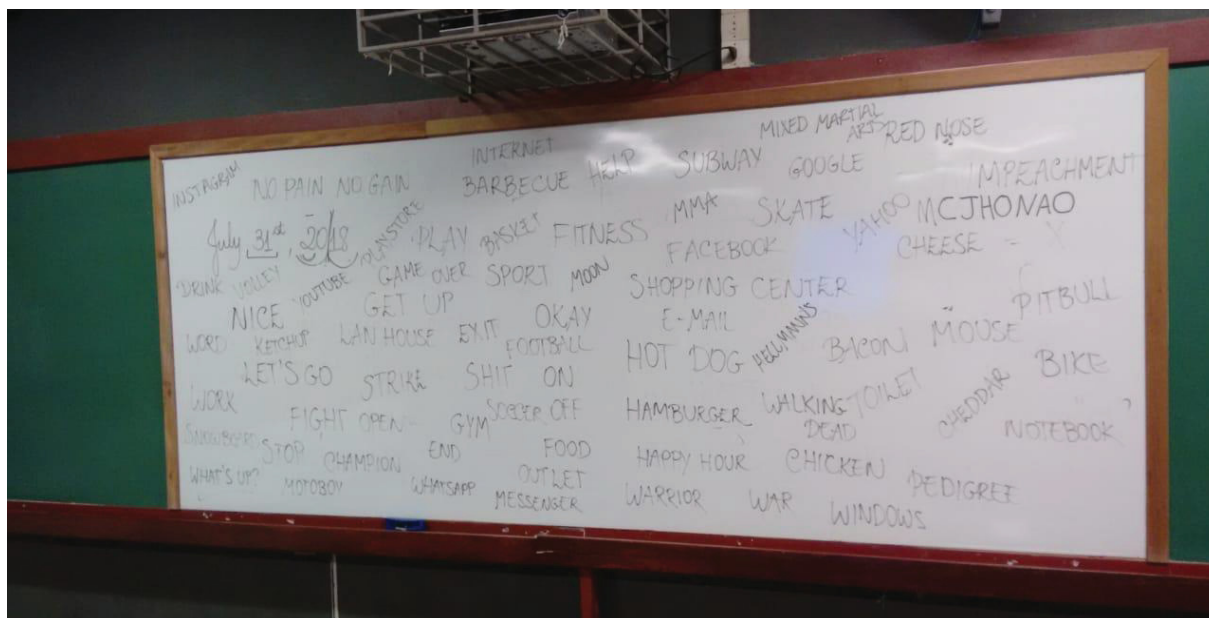 MIXED MARTIAL ARTS RED NOSE
INTERNET
INSTAGRAM NO PAIN NO GAIN BARBECUE HELP SUBWAY GOOGLE IMPEACHMENT
July 31st, 2018 PLAYSTORE PLAY BASKET FITNESS MMA SKATE YAHOO MCJHONAO
FACEBOOK CHEESE =
DRINK VOLLEY YOUTUBE GAME OVER SPORT MOON SHOPPING CENTER
NICE GET UP OKAY E-MAIL PITBULL
WORD KETCHUP LAN HOUSE EXIT FOOTBALL HOT DOG HELLMANNS BACON MOUSE
LET'S GO STRIKE SHIT ON BIKE
WORK FIGHT OPEN GYM SOCCER OFF HAMBURGER WALKING DEAD TOILET CHEDDAR NOTEBOOK
SNOWBOARD STOP CHAMPION END FOOD HAPPY HOUR CHICKEN
WHAT'S UP? MOTOBOY WHATSAPP OUTLET PEDIGREE
MESSENGER WARRIOR WAR WINDOWS